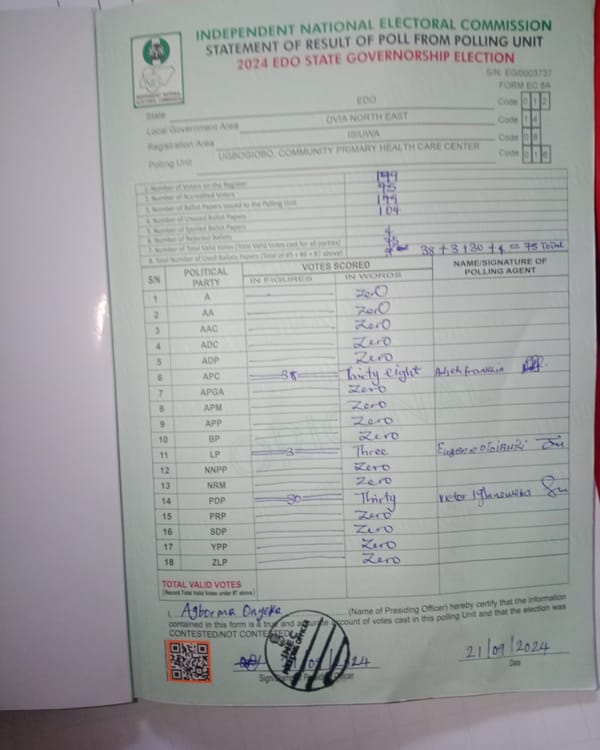 INDEPENDENT NATIONAL ELECTORAL COMMISSION
STATEMENT OF RESULT OF POLL FROM POLLING UNIT
2024 EDO STATE GOVERNORSHIP ELECTION
S/N: EG/0003737
FORM EC 8A
INDEPENDENT NATIONAL ELECTORAL COMMISSION
State EDO Code 0 1 2
Local Government Area OVIA NORTH EAST Code 1 4
Registration Area ISIUWA Code 0 8
Polling Unit UGBOGIOBO, COMMUNITY PRIMARY HEALTH CARE CENTER Code 0 1 6
1. Number of Voters on the Register 179
2. Number of Accredited Voters 75
3. Number of Ballot Papers Issued to the Polling Unit 179
4. Number of Unused Ballot Papers 104
5. Number of Spoiled Ballot Papers
6. Number of Rejected Ballots 4
7. Number of Total Valid Votes (Total Valid Votes cast for all parties)
8. Total Number of Used Ballots Papers (Total of #5 + #6 + #7 above) 38 + 3 + 30 + 4 = 75 Total
S/N POLITICAL PARTY VOTES SCORED NAME/SIGNATURE OF POLLING AGENT
IN FIGURES IN WORDS
1 A Zero
2 AA Zero
3 AAC Zero
4 ADC Zero
5 ADP Zero
6 APC 38 Thirty eight Franklin
7 APGA Zero
8 APM Zero
9 APP Zero
10 BP Zero
11 LP 3 Three Eugene
12 NNPP Zero
13 NRM Zero
14 PDP 30 Thirty Victor
15 PRP Zero
16 SDP Zero
17 YPP Zero
18 ZLP Zero
TOTAL VALID VOTES
(Record Total Valid Votes under #7 above)
I, Agborma Onyeka (Name of Presiding Officer) hereby certify that the information
contained in this form is a true and accurate account of votes cast in this polling Unit and that the election was
CONTESTED/NOT CONTESTED
INEC
21/09/2024
Date